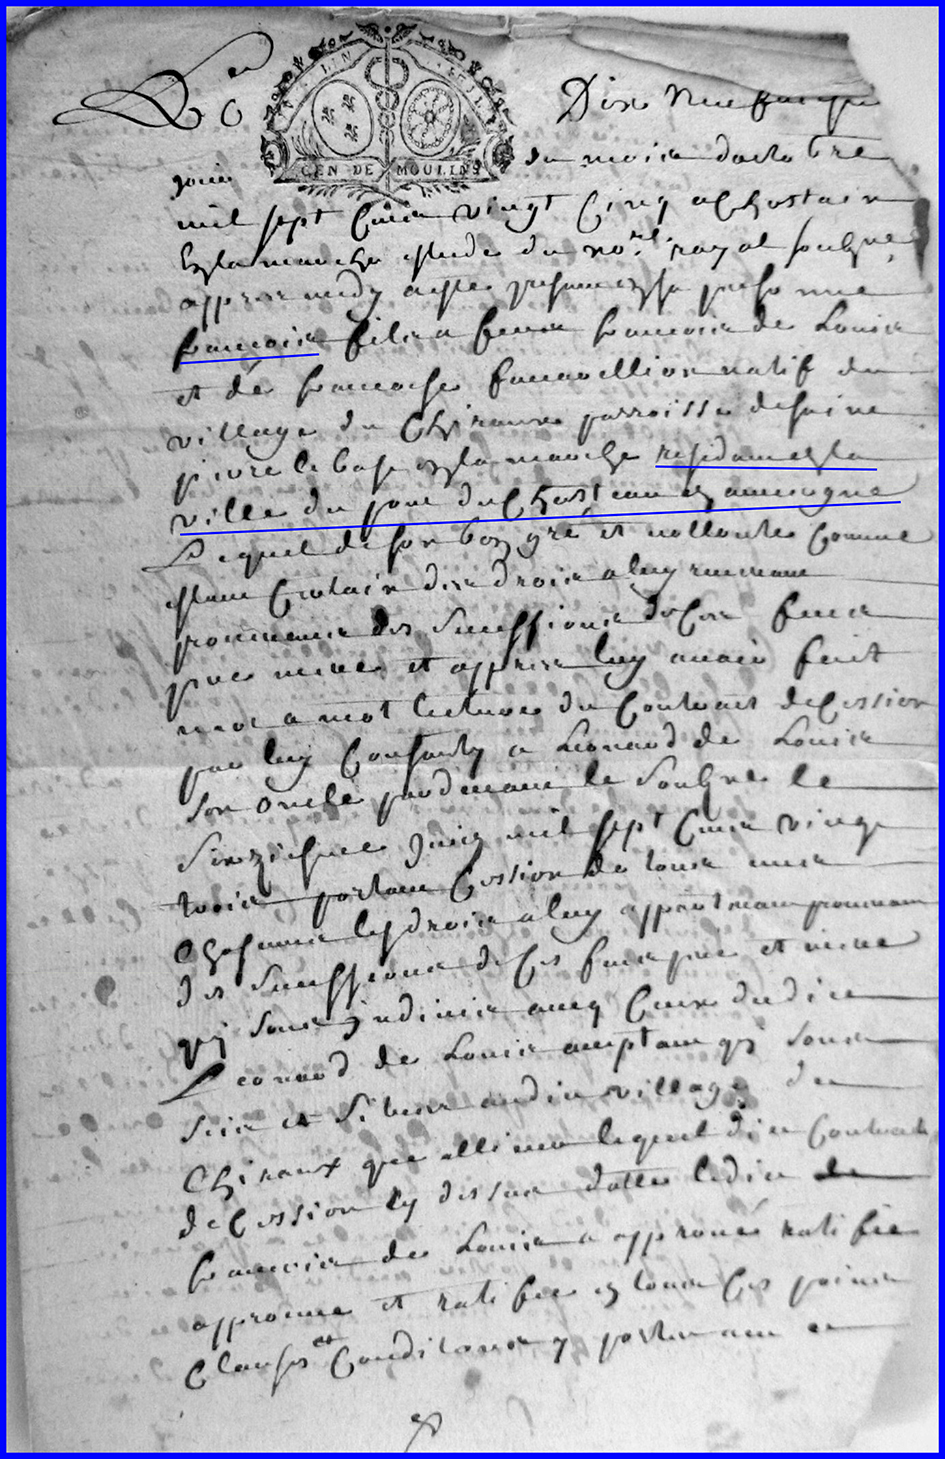 GEN DE MOULINS
Dix neufiesme
jour du mois doctobre
mil sept Cens vingt Cinq a Chastain
En la marche estude du no.re royal soubsigné
appres midy a esté present en sa personne
francois fils a feux francois de Louis
et de francoise natif du
village du Chiraux parroisse de saint
pivre le bost en la marche residant en la
ville du pont du Chasteau en auvergne
Lequel de son bon gré et vollonté Comme
estant Certain des droits a luy
provenant des Successions de Ces feux
pere mere et appres luy avoir fait
mot a mot lecture du Contrat de Cession
par luy Consanty a Leonard de Louis
son oncle pardevant le Soubsigné le
Seiziesme juin mil sept Cens vingt
trois portant Cession de tous uns
Chascuns les droits a luy appartenant provenant
des Successions de Ces feux pere et mere
qui sont indivis avecq Ceux dudit
Leonard de Louis qui sont
Sis et Situés audit village du
Chiraux que allieurs lequel dit Contrat
de Cession Cy dessus datté ledit
francois de Louis a approuvé ratifié
approuve et ratifie en tous Ces points
Clauses et Conditions y portés